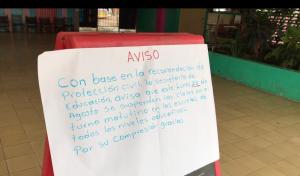 AVISO
Con base en la recomendación de
Protección civil la secretaría de
Educación avisa que este lunes de
Agosto se suspenden las clases en el
turno matutino en las escuelas de
todos los niveles educativos.
Por su comprensión gracias.